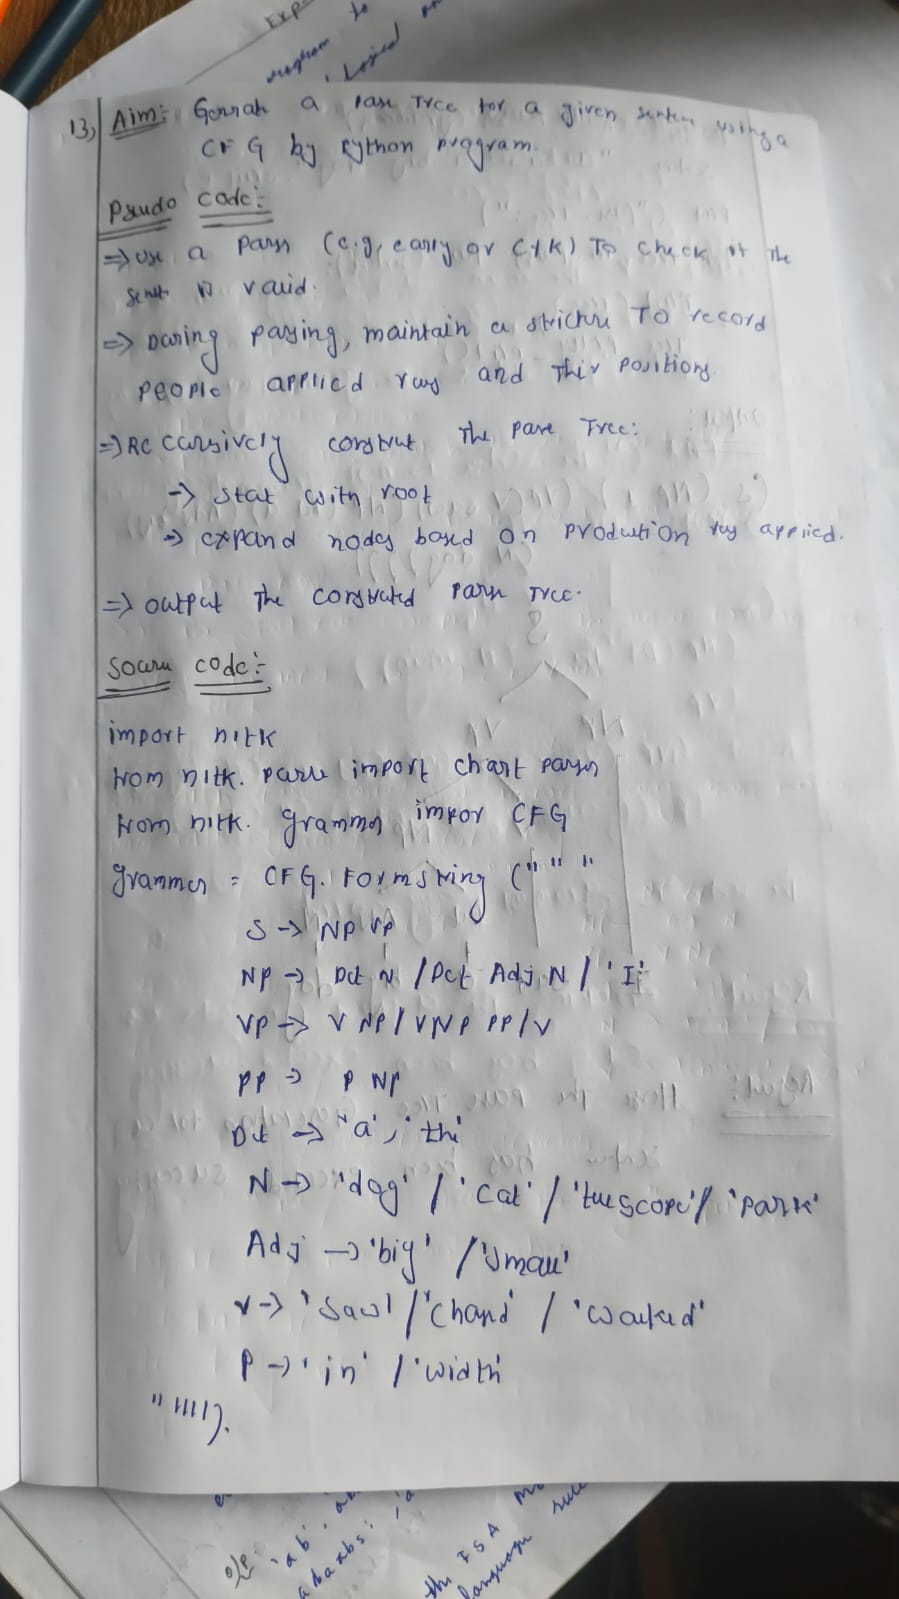 Exp
program to
Logical
13) Aim: Gennat a pase Tree for a given senten using a
CFG by python program.
Pseudo code:-
=> use a pars (e.g, early or CYK) To check if the
sent is vaild.
=> During pasying, maintain a strictru To record
people applied ruls and Thir positions.
=> Reccursively construt The pare Tree:
-> stat with root
-> expand nodes based on production rus applied.
=> output The constrated parse Tree.
Soure code:-
import nltk
from nltk. parse import chart parser
from nltk. grammer impor CFG
grammer = CFG. Formstring (" " "
S -> NP VP
NP -> Det N / Det Adj N / 'I'
VP -> V NP / V NP PP / V
PP -> P NP
Det -> 'a', 'the'
N -> 'dog' / 'cat' / 'telescope' / 'park'
Adj -> 'big' / 'small'
V -> 'saw' / 'chased' / 'walked'
P -> 'in' / 'width'
o/p
'ab',
language
the FSA